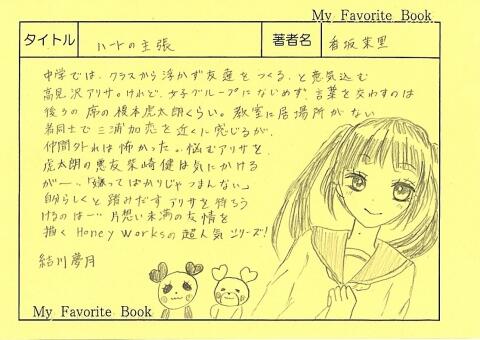 My Favorite Book
タイトル ハートの主張 著者名 香坂茉里
中学では、クラスから浮かず友達をつくる、と意気込む
高見沢アリサ。けれど、女子グループになじめず、言葉を交わすのは
後ろの席の榎本虎太朗くらい。教室に居場所がない
者同士で三浦加恋を近くに感じるが、
仲間外れは怖かった。悩むアリサを、
虎太朗の悪友柴崎健は気にかける
が――。「嫌ってばかりじゃつまんない」
自分らしくと踏みだすアリサを待ちう
けるのは…片想い未満の友情を
描くHoneyWorksの超人気シリーズ!
結川夢月
My Favorite Book